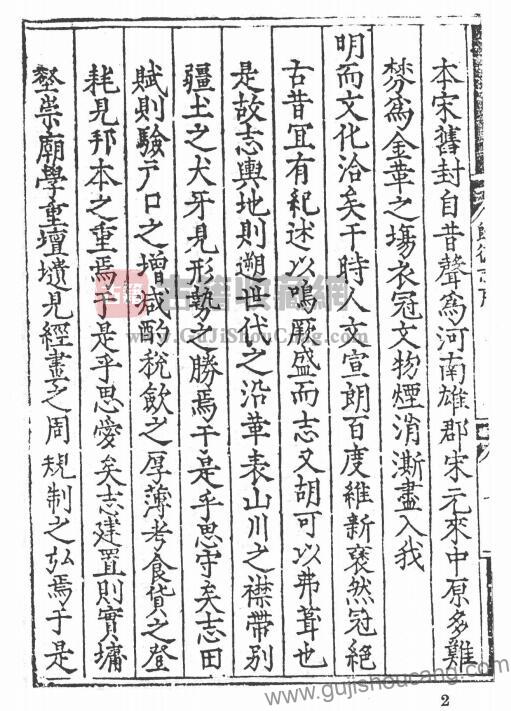 本宋舊封自昔聲為河南雄郡宋元來中原多難
棼為金革之場衣冠文物煙消澌盡入我
明而文化洽矣于時人文宣朗百度維新裒然冠絕
古昔宜有紀述以鳴厥盛而志又胡可以弗葺也
是故志輿地則遡世代之沿革表山川之襟帶別
疆土之犬牙見形勢之勝焉于是乎思守矣志田
賦則驗戶口之增減酌稅歛之厚薄考食貨之登
耗見邦本之重焉于是乎思愛矣志建置則實墉
壑崇廟學重壇壝見經畫之周規制之弘焉于是
古籍
古籍收藏網
www.GuJiShouCang.com
www.gujishoucang.com
2